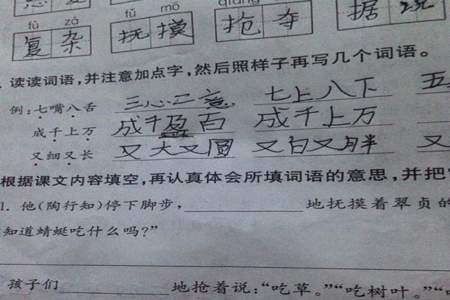 fù zá fǔ mō qiǎng
复杂 抚摸 抢夺 据说
读读词语,并注意加点字,然后照样子再写几个词语。
例:七嘴八舌 三心二意 七上八下 五
成千上万 成千盈百 成千上万
又细又长 又大又圆 又白又胖 又
根据课文内容填空,再认真体会所填词语的意思,并把
1. 他(陶行知)停下脚步, 地抚摸着翠贞的
知道蜻蜓吃什么吗?”
孩子们 地抢着说:“吃草。”“吃树叶。”“